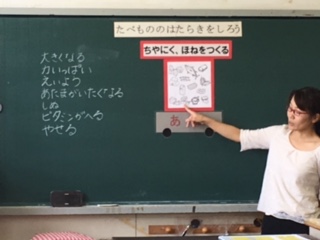 たべもののはたらきをしろう
ちやにく、ほねをつくる
あ
大きくなる
力いっぱい
えいよう
あたまがいたくなる
しぬ
ビタミンがへる
やせる